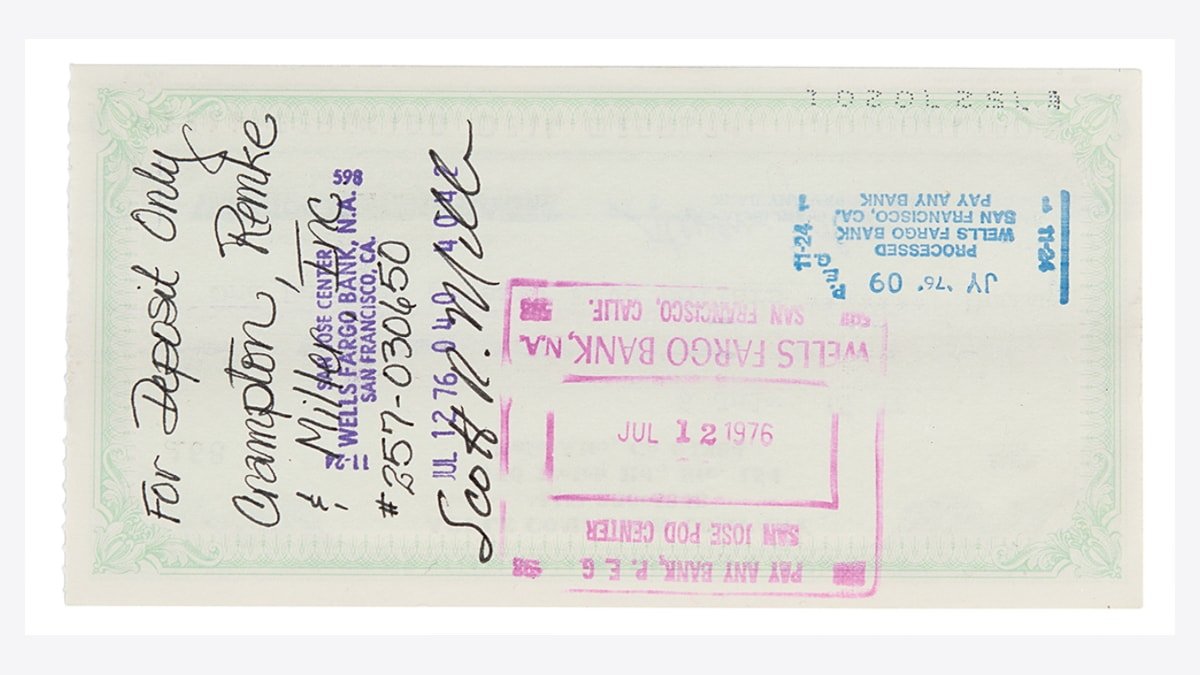 For Deposit Only
Crampton, Remke
& Miller, Inc
# 257-030650
Scott R. Miller
598
SAN JOSE CENTER
WELLS FARGO BANK, N.A.
SAN FRANCISCO, CA.
11-24
JUL 12 76 040 4042
PAY ANY BANK, P. E. G
SAN JOSE POD CENTER
JUL 12 1976
WELLS FARGO BANK, N.A.
SAN FRANCISCO, CALIF.
598
JY '76. 09
P.M.
PROCESSED
WELLS FARGO BANK
SAN FRANCISCO, CA.
PAY ANY BANK
11-24
11-24